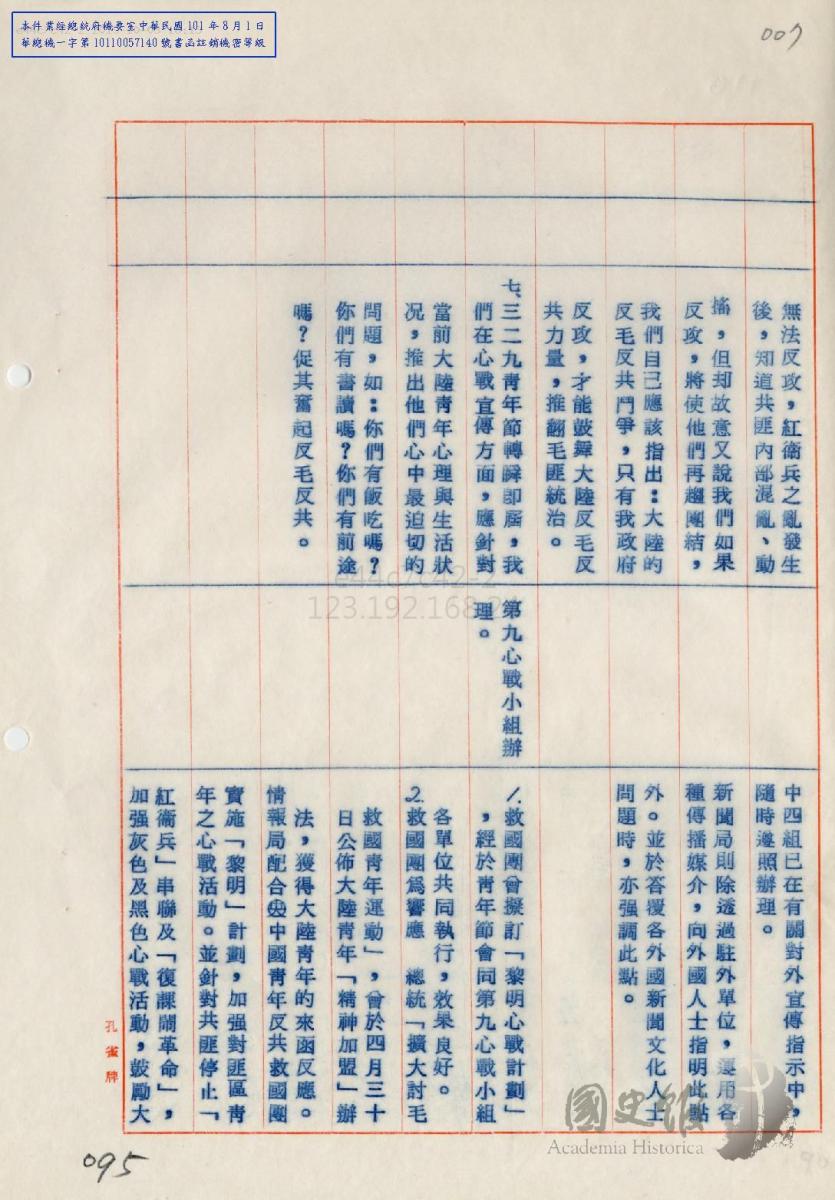 本件業經總統府機要室中華民國101年8月1日
華總機一字第10110057140號書函註銷機密等級
007
無法反攻，紅衞兵之亂發生
後，知道共匪內部混亂、動
搖，但却故意又說我們如果
反攻，將使他們再趨團結，
我們自己應該指出：大陸的
反毛反共鬥爭，只有我政府
反攻，才能鼓舞大陸反毛反
共力量，推翻毛匪統治。
七、三二九靑年節轉瞬即屆，我
們在心戰宣傳方面，應針對
當前大陸靑年心理與生活狀
况，推出他們心中最迫切的
問題，如：你們有飯吃嗎？
你們有書讀嗎？你們有前途
嗎？促其奮起反毛反共。
第九心戰小組辦
理。
中四組已在有關對外宣傳指示中，
隨時遵照辦理。
新聞局則除透過駐外單位，運用各
種傳播媒介，向外國人士指明此點
外。並於答覆各外國新聞文化人士
問題時，亦强調此點。
1.救國團曾擬訂「黎明心戰計劃」
，經於靑年節會同第九心戰小組
各單位共同執行，效果良好。
2.救國團爲響應　總統「擴大討毛
救國靑年運動」，曾於四月三十
日公佈大陸靑年「精神加盟」辦
法，獲得大陸靑年的來函反應。
情報局配合中國靑年反共救國團
實施「黎明」計劃，加强對匪區靑
年之心戰活動。並針對共匪停止「
紅衞兵」串聯及「復課鬧革命」，
加强灰色及黑色心戰活動，鼓勵大
孔雀牌
e44c7c42-2
123.192.168.24
國史館
Academia Historica
095